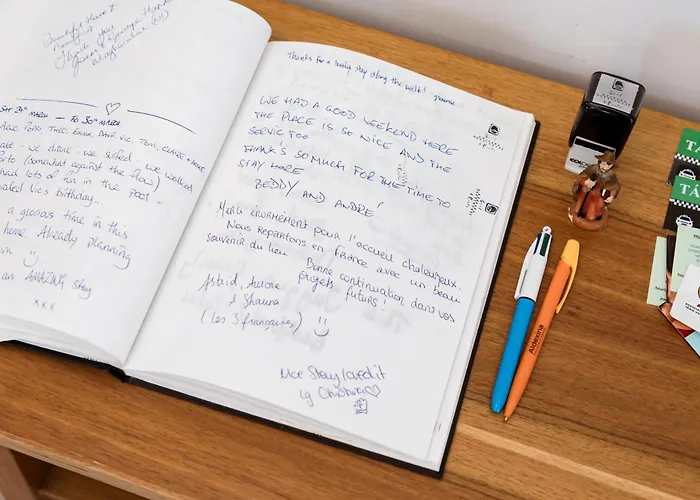 Beautiful House!
SAT 24th MARCH — TO 30th MARCH
ate - we drank - we surfed - we walked
(somewhat against the flow)
had lots of fun in the pool -
birthday...
a glorious time in this
home. Already planning
an AMAZING stay
xxx
Thanks for a lovely stay along the walk!
WE HAD A GOOD WEEKEND HERE
THE PLACE IS SO NICE AND THE
SERVICE TOO
THANK'S SO MUCH FOR THE TIME TO
STAY HERE
BEDDY AND ANDRÉ
Merci énormément pour l'accueil chaleureux.
Nous repartons en France avec un beau
souvenir du lieu. Bonne continuation dans vos
projets futurs!
Astrid, Aurore
& Shauna
(les 3 françaises) :)
Nice Stay loved it
Aldexina
TÁ
TÁ